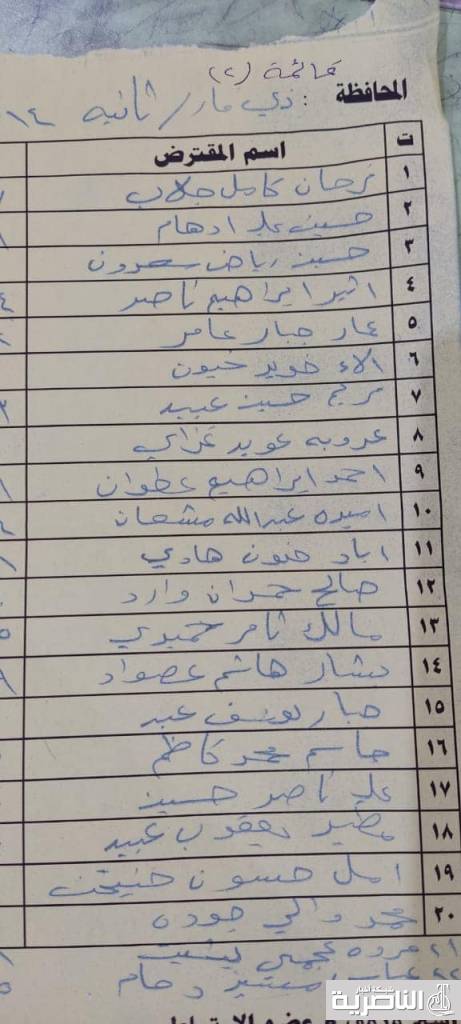 قائمة (٢)
المحافظة : ذي قار / ثانيه ١٤
ت اسم المقترض
١ فرحان كامل جلاب
٢ حسين علي ادهام
٣ حسين رياض سعدون
٤ اثير ابراهيم ناصر
٥ عمار جبار عامر
٦ الاء خيون
٧ مريم حسين عبيد
٨ عروبه عويد غزاي
٩ احمد ابراهيم عطوان
١٠ اميره عبدالله مشعان
١١ اياد خنون هادي
١٢ صالح حمدان وارد
١٣ مالك ثامر حميدي
١٤ بشار هاشم عصواد
١٥ جبار يوسف عبد
١٦ جاسم محمد كاظم
١٧ علي ناصر حسين
١٨ مطير يعقوب عبيد
١٩ امل حسون
٢٠ محمد والي جوده
٢١ مروه عجمي
٢٢ عباس
شبكة اخبار الناصرية